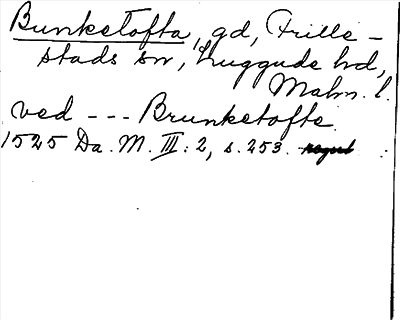 Bunketofta, gd, Frille-
stads sn, Luggude hd,
Malm. l.
ved --- Brunketofte.
1525 Da. M. III: 2, s. 253.